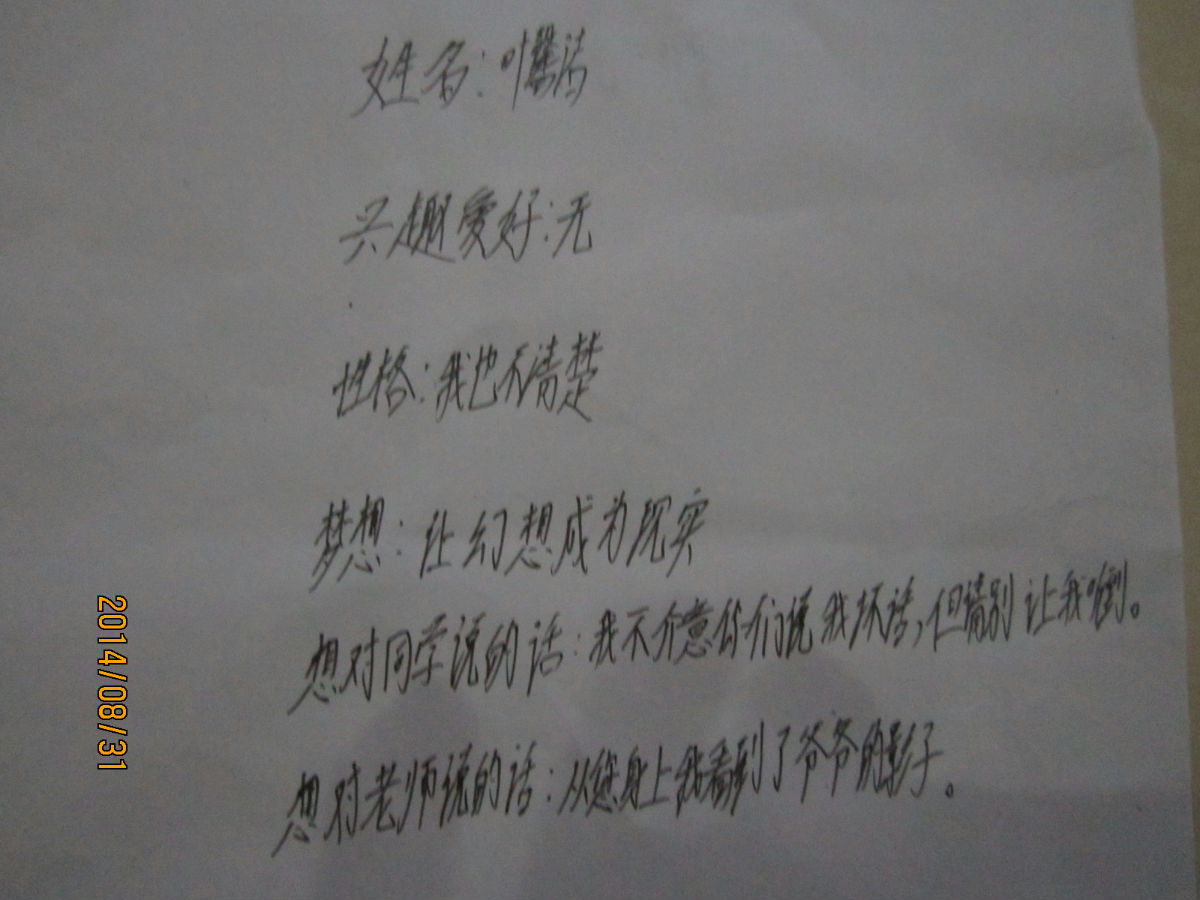 姓名:叶馨清
兴趣爱好:无
性格:我也不清楚
梦想:让幻想成为现实
想对同学说的话:我不介意你们说我坏话,但请别让我听到。
想对老师说的话:从您身上我看到了爷爷的影子。
2014/08/31